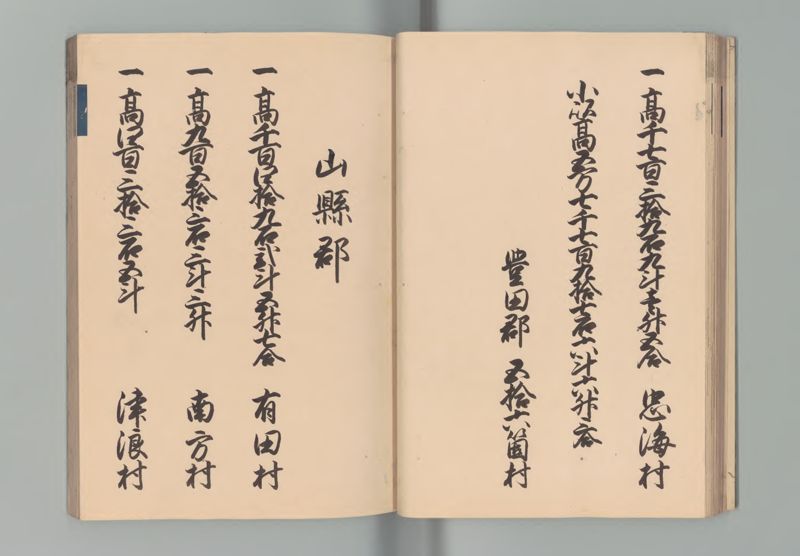 一高千七百三拾九石九斗壱升五合 忠海村
小以高五万七千七百九拾七石六斗六升六合
豊田郡 五拾六箇村
山縣郡
一高千百四拾九石弐斗五升七合 有田村
一高九百五拾三石三斗三升 南方村
一高四百三拾三石五斗 津浪村